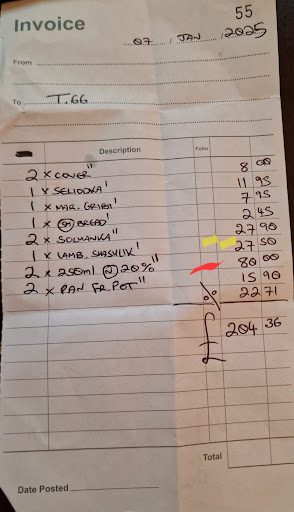 55
Invoice
07 JAN 2025
From
To T.GG
Description Folio
2 x COVER" 8 00
1 x SELIODKA' 11 95
1 x MAR. GRIBI' 7 95
1 x BREAD' 2 45
2 x SOLMANKA" 27 90
1 x LAMB. SHASHLIK' 27 50
2 x 250ml 20%" 80 00
2 x PAN FR. POT" 15 90
% 22 71
£ 204 36
Total
Date Posted